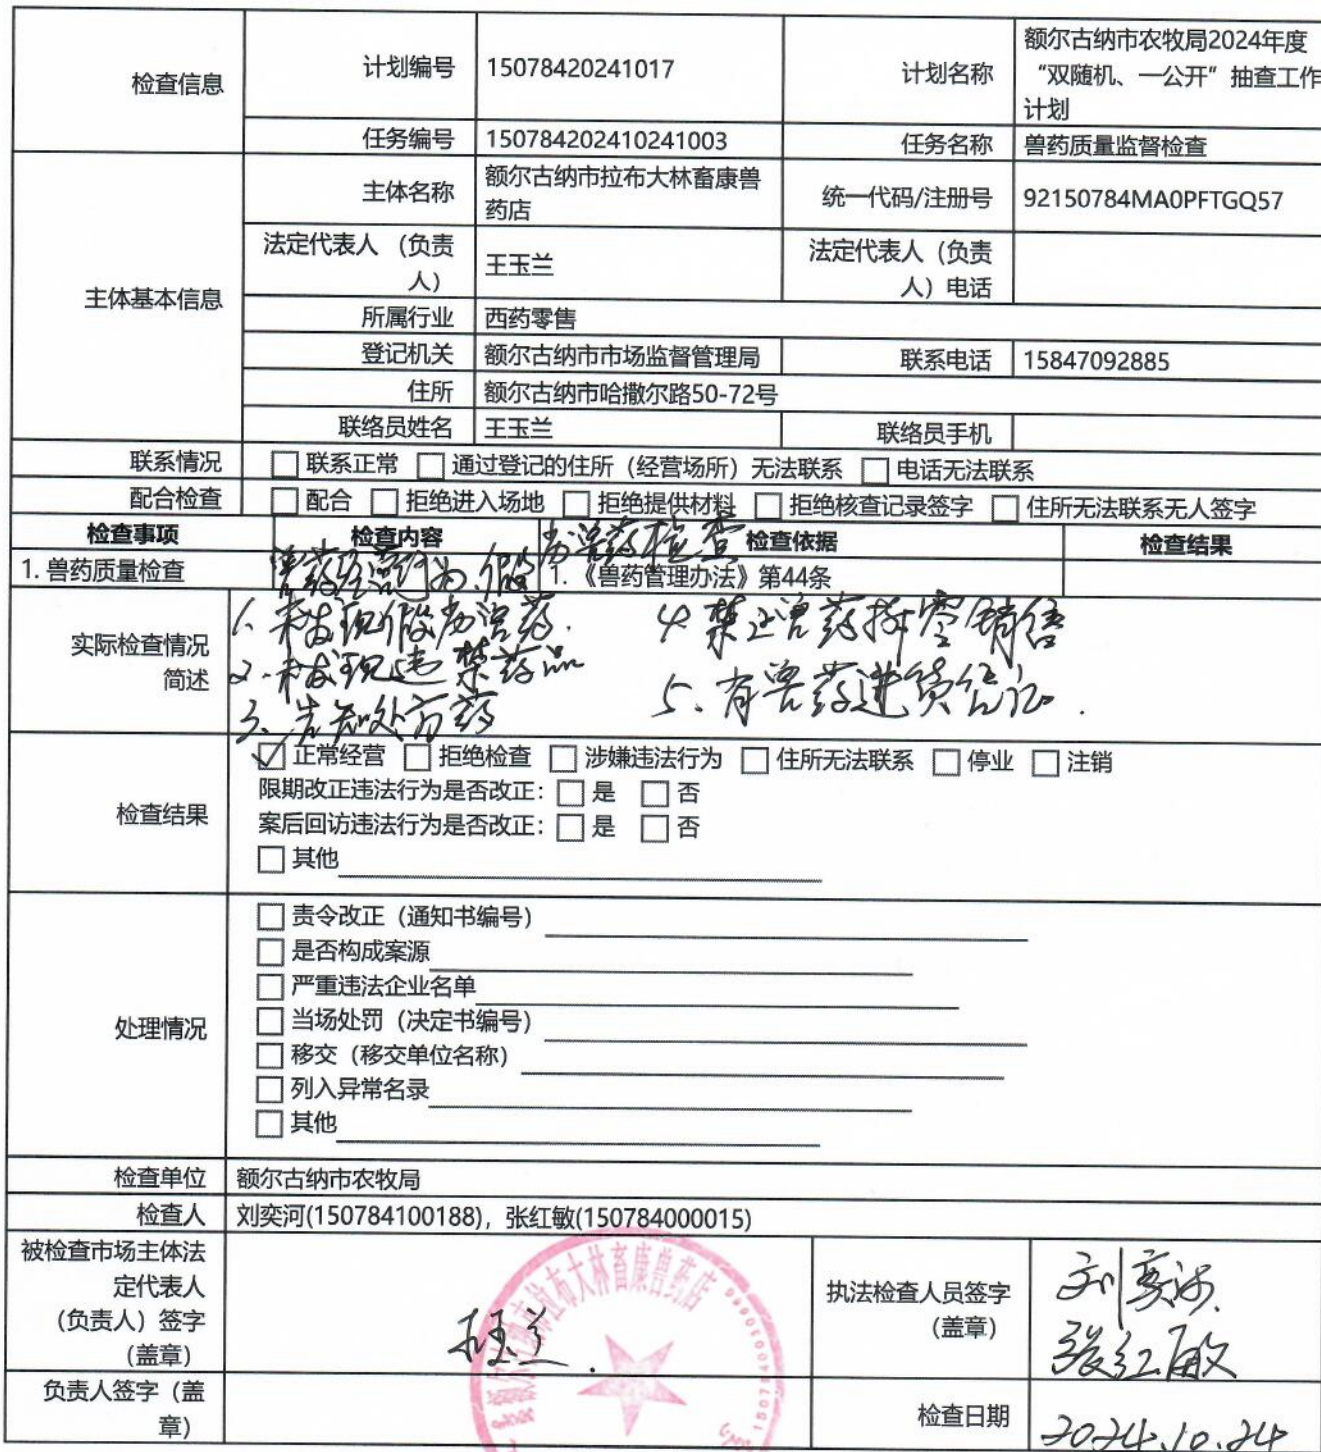 检查信息 计划编号 15078420241017 计划名称 额尔古纳市农牧局2024年度
“双随机、一公开”抽查工作
计划
任务编号 150784202410241003 任务名称 兽药质量监督检查
主体基本信息 主体名称 额尔古纳市拉布大林畜康兽
药店 统一代码/注册号 92150784MA0PFTGQ57
法定代表人 （负责
人） 王玉兰 法定代表人（负责
人）电话
所属行业 西药零售
登记机关 额尔古纳市市场监督管理局 联系电话 15847092885
住所 额尔古纳市哈撒尔路50-72号
联络员姓名 王玉兰 联络员手机
联系情况 □ 联系正常 □ 通过登记的住所（经营场所）无法联系 □ 电话无法联系
配合检查 □ 配合 □ 拒绝进入场地 □ 拒绝提供材料 □ 拒绝核查记录签字 □ 住所无法联系无人签字
检查事项 检查内容 检查依据 检查结果
劣兽药检查
1. 兽药质量检查 兽药经营行为、假 1. 《兽药管理办法》第44条
实际检查情况
简述
1、未发现假劣兽药.
2、未发现违禁药品
3、告知处方药
4 禁止兽药拆零销售
5、有兽药进货凭证.
检查结果 ☑ 正常经营 □ 拒绝检查 □ 涉嫌违法行为 □ 住所无法联系 □ 停业 □ 注销
限期改正违法行为是否改正：□ 是 □ 否
案后回访违法行为是否改正：□ 是 □ 否
□ 其他
处理情况
□ 责令改正（通知书编号）
□ 是否构成案源
□ 严重违法企业名单
□ 当场处罚（决定书编号）
□ 移交（移交单位名称）
□ 列入异常名录
□ 其他
检查单位 额尔古纳市农牧局
检查人 刘奕河(150784100188)，张红敏(150784000015)
被检查市场主体法
定代表人
（负责人）签字
（盖章）
王玉兰.
额尔古纳市拉布大林畜康兽药店
执法检查人员签字
（盖章）
刘奕河
张红敏
负责人签字（盖
章）
检查日期 2024.10.24